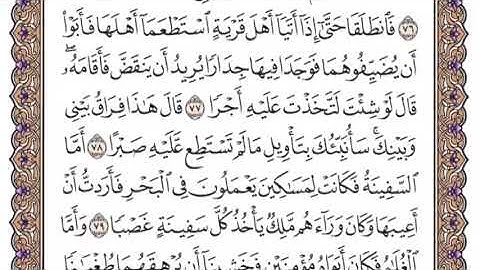 ٧٦ فَٱنطَلَقَا حَتَّىٰٓ إِذَآ أَتَيَآ أَهْلَ قَرْيَةٍ ٱسْتَطْعَمَآ أَهْلَهَا فَأَبَوْا۟
أَن يُضَيِّفُوهُمَا فَوَجَدَا فِيهَا جِدَارًا يُرِيدُ أَن يَنقَضَّ فَأَقَامَهُۥۖ
قَالَ لَوْ شِئْتَ لَتَّخَذْتَ عَلَيْهِ أَجْرًا ٧٧ قَالَ هَٰذَا فِرَاقُ بَيْنِى
وَبَيْنِكَۚ سَأُنَبِّئُكَ بِتَأْوِيلِ مَا لَمْ تَسْتَطِع عَّلَيْهِ صَبْرًا ٧٨ أَمَّا
ٱلسَّفِينَةُ فَكَانَتْ لِمَسَٰكِينَ يَعْمَلُونَ فِى ٱلْبَحْرِ فَأَرَدتُّ أَنْ
أَعِيبَهَا وَكَانَ وَرَآءَهُم مَّلِكٌ يَأْخُذُ كُلَّ سَفِينَةٍ غَصْبًا ٧٩ وَأَمَّا
ٱلْغُلَٰمُ فَكَانَ أَبَوَاهُ مُؤْمِنَيْنِ فَخَشِينَآ أَن يُرْهِقَهُمَا طُغْيَٰنًا